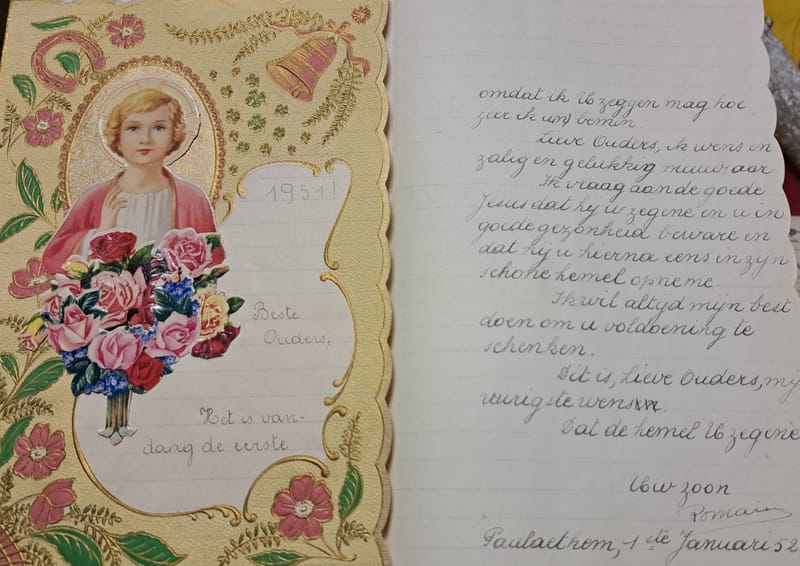 1951!
Beste
Ouders,
Het is van-
daag de eerste
omdat ik U zeggen mag hoe
zeer ik bemin.
Lieve Ouders, ik wens en
zalig en gelukkig nieuwjaar.
Ik vraag aan de goede
Jesus dat hij u zegene en u in
goede gezonheid beware en
dat hij u hierna eens in zijn
schone hemel opneme.
Ik wil altyd mijn best
doen om u voldoening te
schenken.
Dit is, Lieve Ouders, mij
vurigste wens
Dat de hemel U zegene
Uw zoon
Romain
Paulaethem, 1ste Januari 52